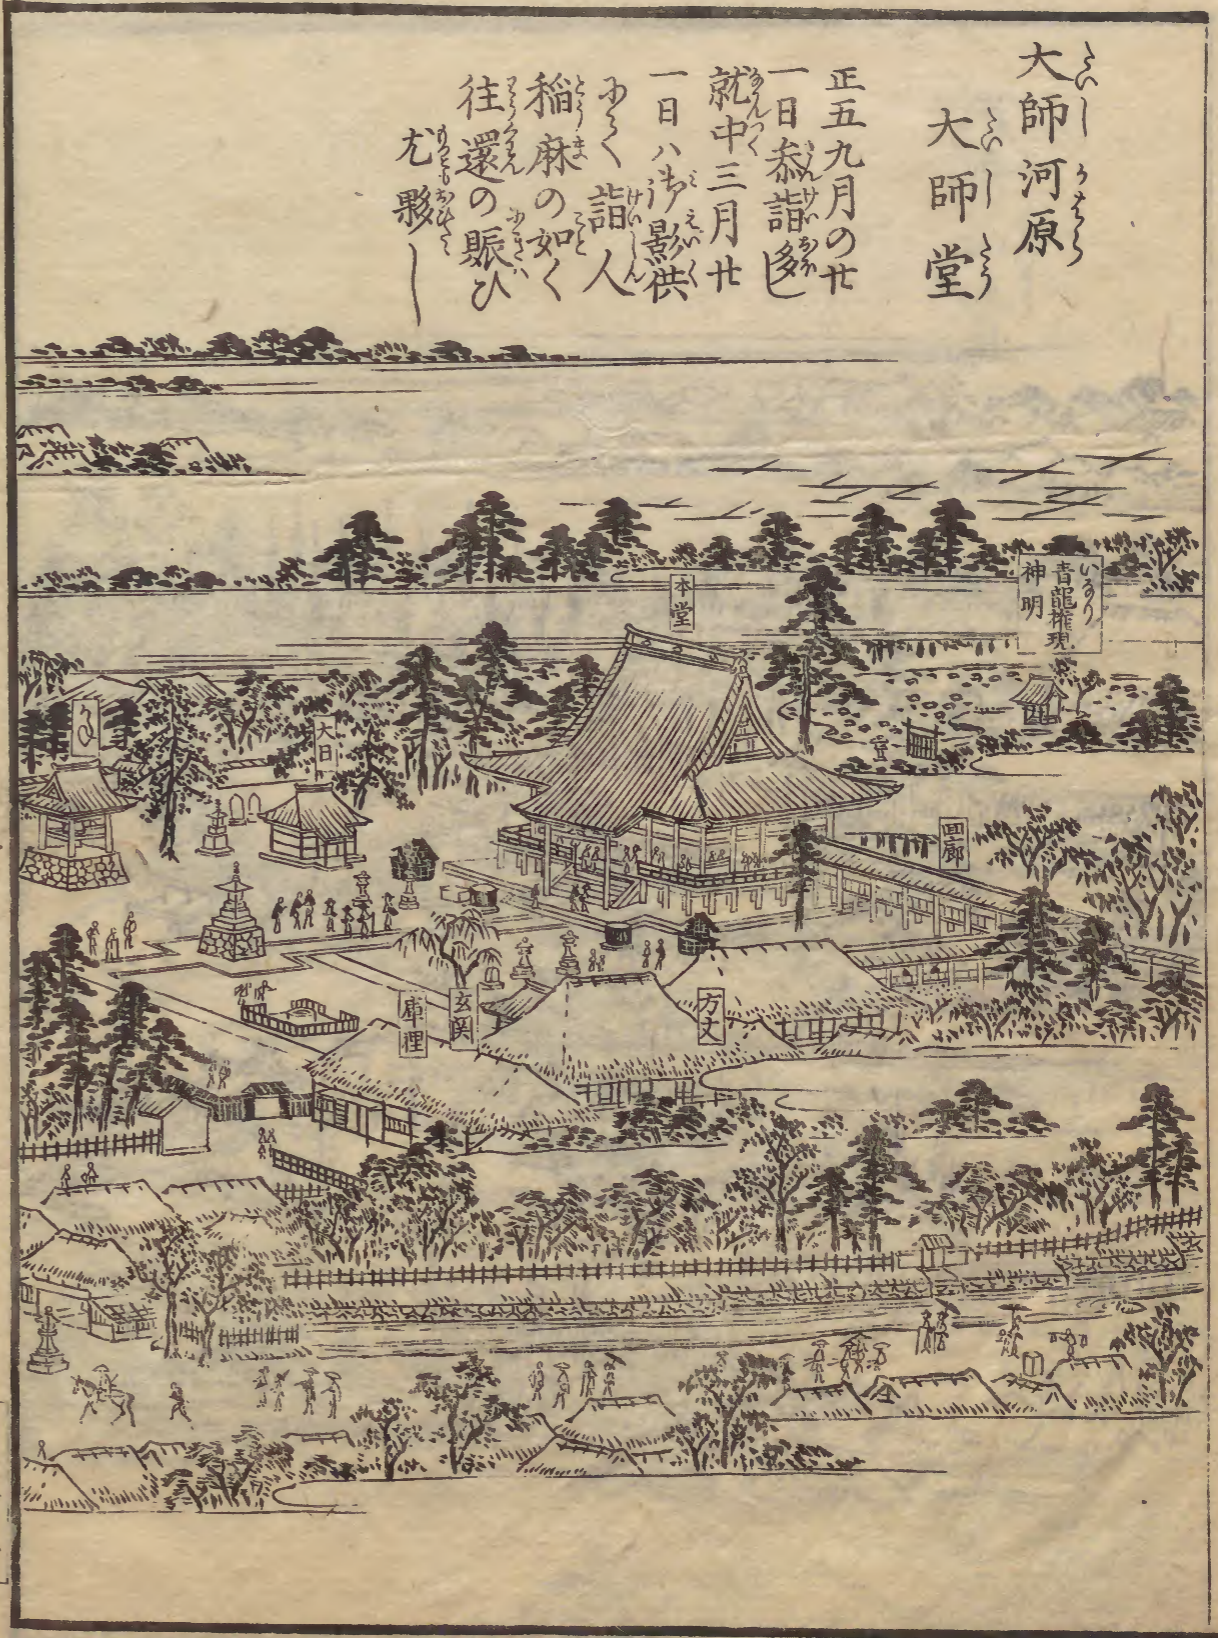 大師河原
大師堂
正五九月の廿
一日参詣多し
就中三月廿
一日ハ御影供
にて詣人
稲麻の如く
往還の賑ひ
尤夥し
いなり
青龍権現
神明
本堂
大日
回廊
方丈
玄関
庫裡